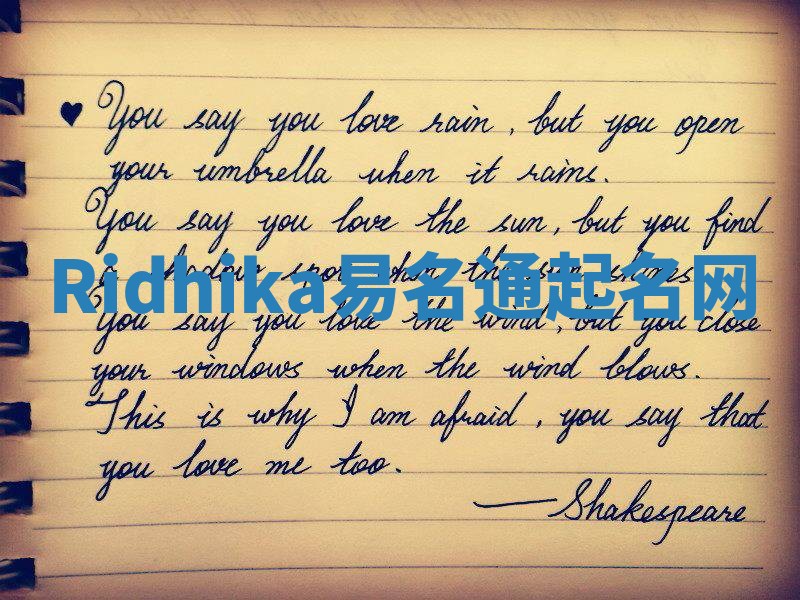 ♥ You say you love rain, but you open
your umbrella when it rains.
You say you love the sun, but you find
a shadow spot when the sun shines
Ridhika易名通起名网
You say you love the wind, but you close
your windows when the wind blows.
This is why I am afraid, you say that
you love me too.
— Shakespeare